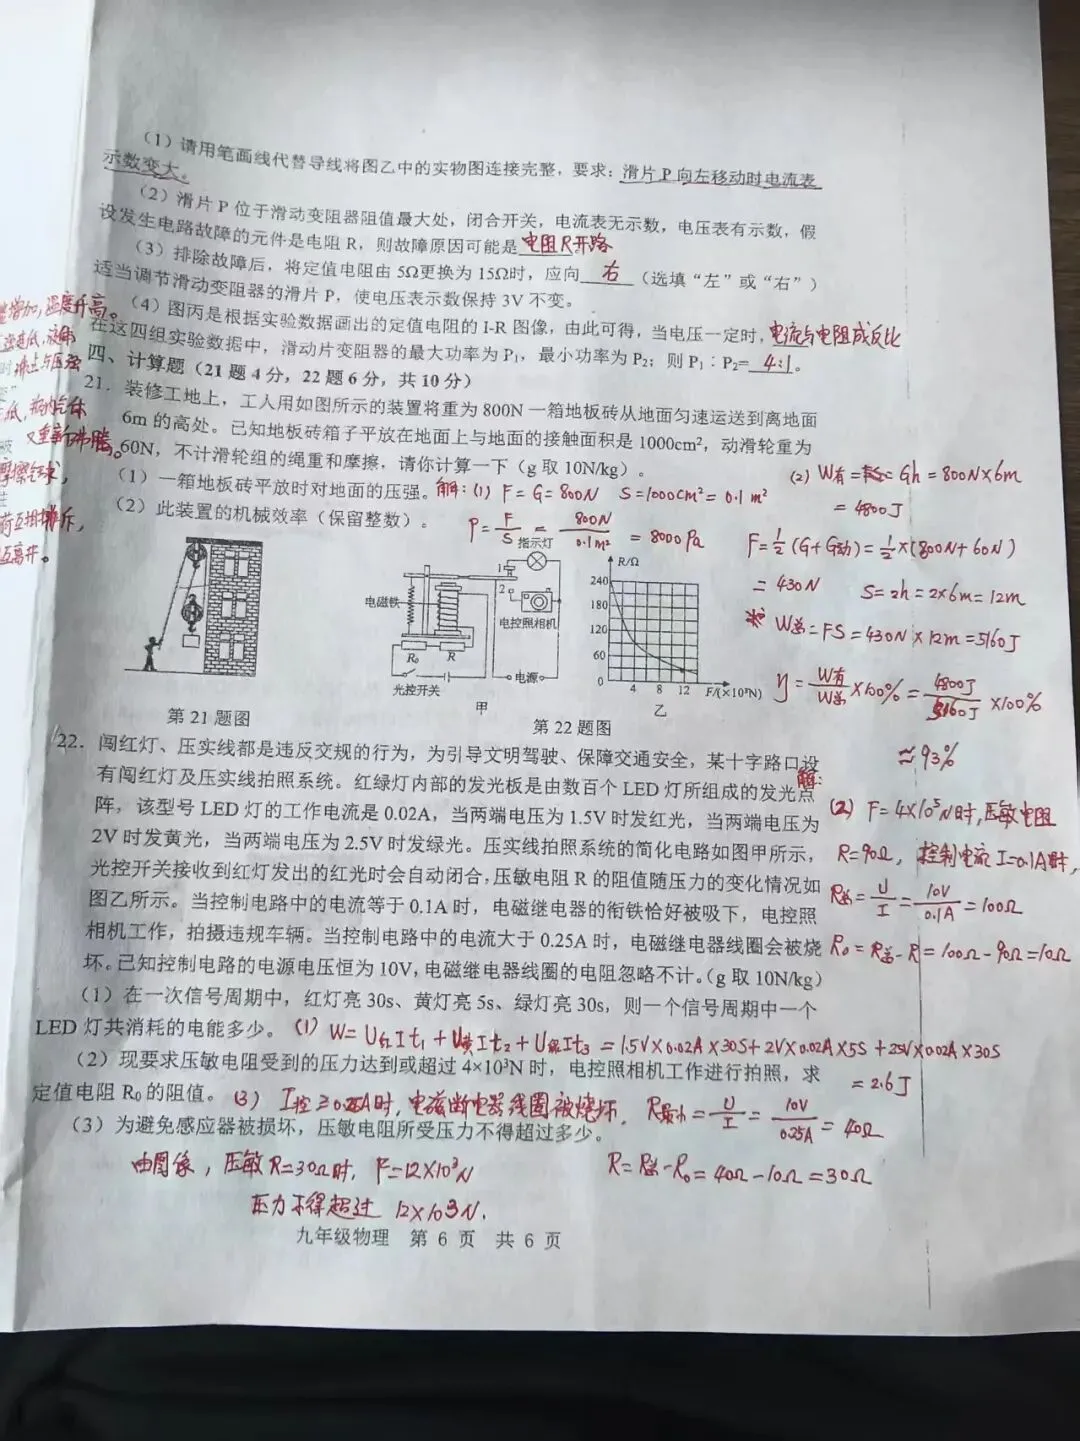 (1)请用笔画线代替导线将图乙中的实物图连接完整，要求：滑片 P 向左移动时电流表
示数变大。
(2)滑片 P 位于滑动变阻器阻值最大处，闭合开关，电流表无示数，电压表有示数，假
设发生电路故障的元件是电阻 R，则故障原因可能是 电阻R开路
(3)排除故障后，将定值电阻由 5Ω更换为 15Ω时，应向 右 （选填“左”或“右”）
适当调节滑动变阻器的滑片 P，使电压表示数保持 3V 不变。
(4)图丙是根据实验数据画出的定值电阻的 I-R 图像，由此可得，当电压一定时，电流与电阻成反比
在这四组实验数据中，滑动片变阻器的最大功率为 P₁，最小功率为 P₂；则 P₁：P₂= 4:1。
四、计算题（21 题 4 分，22 题 6 分，共 10 分）
21．装修工地上，工人用如图所示的装置将重为 800N 一箱地板砖从地面匀速运送到离地面
6m 的高处。已知地板砖箱子平放在地面上与地面的接触面积是 1000cm²，动滑轮重为
60N，不计滑轮组的绳重和摩擦，请你计算一下（g 取 10N/kg）。
(1)一箱地板砖平放时对地面的压强。解：(1) F=G=800N S=1000cm²=0.1m²
(2)此装置的机械效率（保留整数）。
P=F/S=800N/0.1m²=8000Pa
(2) W有= Gh=800N×6m
=4800J
F=½(G+G动)=½×(800N+60N)
=430N S=2h=2×6m=12m
W总=FS=430N×12m=5160J
η=W有/W总×100%=4800J/5160J×100%
≈93%
指示灯
1
2
电磁铁
电控照相机
R₀ R
光控开关
电源
甲
R/Ω
240
180
120
60
0
4 8 12 F/(×10³N)
乙
第 21 题图
第 22 题图
22．闯红灯、压实线都是违反交规的行为，为引导文明驾驶、保障交通安全，某十字路口设
有闯红灯及压实线拍照系统。红绿灯内部的发光板是由数百个 LED 灯所组成的发光点
阵，该型号 LED 灯的工作电流是 0.02A，当两端电压为 1.5V 时发红光，当两端电压为
2V 时发黄光，当两端电压为 2.5V 时发绿光。压实线拍照系统的简化电路如图甲所示，
光控开关接收到红灯发出的红光时会自动闭合，压敏电阻 R 的阻值随压力的变化情况如
图乙所示。当控制电路中的电流等于 0.1A 时，电磁继电器的衔铁恰好被吸下，电控照
相机工作，拍摄违规车辆。当控制电路中的电流大于 0.25A 时，电磁继电器线圈会被烧
坏。已知控制电路的电源电压恒为 10V，电磁继电器线圈的电阻忽略不计。（g 取 10N/kg）
解：
(2) F=4×10³N时，压敏电阻
R=90Ω，控制电流 I=0.1A时，
R总=U/I=10V/0.1A=100Ω
R₀=R总-R=100Ω-90Ω=10Ω
(1)在一次信号周期中，红灯亮 30s、黄灯亮 5s、绿灯亮 30s，则一个信号周期中一个
LED 灯共消耗的电能多少。(1) W=U红It₁+U黄It₂+U绿It₃=1.5V×0.02A×30S+2V×0.02A×5S+2.5V×0.02A×30S
=2.6J
(2)现要求压敏电阻受到的压力达到或超过 4×10³N 时，电控照相机工作进行拍照，求
定值电阻 R₀ 的阻值。(3) I控≥0.25A时，电磁断电器线圈被烧坏，R最小=U/I=10V/0.25A=40Ω
(3)为避免感应器被损坏，压敏电阻所受压力不得超过多少。
由图像，压敏R=30Ω时，F=12×10³N R=R总-R₀=40Ω-10Ω=30Ω
压力不得超过 12×10³N.
九年级物理 第 6 页 共 6 页